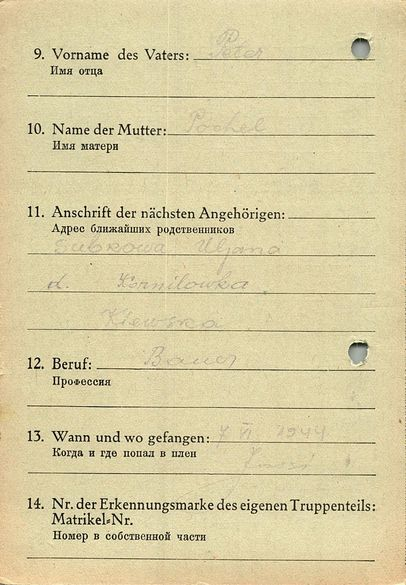 9. Vorname des Vaters: Peter
Имя отца
10. Name der Mutter: Pochel
Имя матери
11. Anschrift der nächsten Angehörigen:
Адрес ближайших родственников
Gubkowa Uljana
d. Kornilowka
Kiewska
12. Beruf: Bauer
Профессия
13. Wann und wo gefangen: 7 VI 1944
Когда и где попал в плен
Jassi
14. Nr. der Erkennungsmarke des eigenen Truppenteils:
Matrikel-Nr.
Номер в собственной части